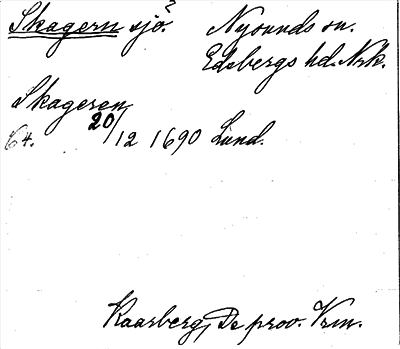 Skagern sjö.² Nysunds sn.
Edsbergs hd. Nrk.
Skageren
64. 20/12 1690 Lund.
Kaarberg, De prov. Vrm.